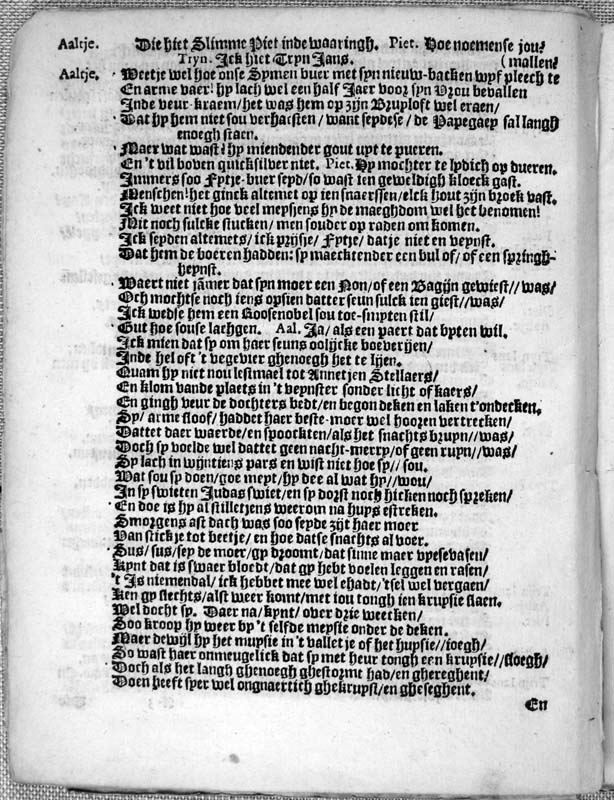 Aaltje. Die hiet Slimme Piet inde waaringh. Piet. Hoe noemense jou?
Tryn. Ick hiet Tryn Jans. (mallen?
Aaltje. Weetje wel hoe onse Symen buer met syn nieuw-backen wyf pleech te
En arme vaer! hy lach wel een half Jaer voor syn Vrou bevallen
Inde veur-kraem/het was hem op zijn Bruyloft wel eraen/
Dat hy hem niet sou verhaesten / want seydese / de Papegaey sal langh
enoegh staen.
Maer wat wast? hy miendender gout uyt te pueren.
En 't vil boven quicksilver niet. Piet. Hy mochter te lydich op dueren.
Immers soo Fytje-buer seyd/so wast ien geweldigh kloeck gast.
Menschen! het ginck altemet op ien snaerssen/elck hout zijn broek vast.
Ick weet niet hoe veel meysjens hy de maeghdom wel het benomen!
Mit noch sulcke stucken/ men souder op raden om komen.
Ick seyden altemets/ick prijsje/ Fytje/ datje niet en veynst.
Dat hem de boeren hadden: sy maecktender een bul of/ of een springh-
heynst.
Waert niet jammer dat syn moer een Non/of een Bagijn gewiest//was/
Och mochtse noch iens opsien datter seun sulck ien giest//was/
Ick wedse hem een Roosenobel sou toe-smyten stil/
Gut hoe souse lachgen. Aal. Ja/als een paert dat byten wil.
Ick mien dat sy om haer seuns oolijcke boeverijen/
Inde hel oft 't vegevier ghenoegh het te lijen.
Quam hy niet nou lestmael tot Annetjen Stellaers/
En klom vande plaets in 't veynster sonder licht of kaers/
En gingh veur de dochters bedt/en begon deken en laken t'ondecken.
Sy/ arme sloof/ haddet haer beste-moer wel hooren vertrecken/
Dattet daer waerde/en spoockten/als het snachts bruyn//was/
Doch sy voelde wel dattet geen nacht-merry/of geen ruyn//was/
Sy lach in wijntiens pars en wist niet hoe sy// sou.
Wat sou sy doen/goe meyt/hy dee al wat hy//wou/
In sy swieten Judas swiet/en sy dorst noch hicken noch spreken/
En doe is hy al stilletjens weerom na huys estreken.
Smorgens ast dach was soo seyde zijt haer moer
Van stick je tot beetje/en hoe datse snachts al voer.
Sus/sus/sey de moer/gy droomt/dat sijnne maer vyesevasen/
Kynt dat is swaer bloedt/dat gy hebt voelen leggen en rasen/
't Is niemendal/ick hebbet mee wel ehadt/'tsel wel vergaen/
Ken gy slechts/alst weer komt/met jou tongh ien kruysie slaen.
Wel docht sy. Daer na/kynt/over drie weecken/
Soo kroop hy weer by 't selfde meysie onder de deken.
Maer dewijl hy het muysie in 't vallet je of het huysie//joegh/
So wast haer onmeugelick dat sy met heur tongh een kruysie//sloegh/
Doch als het langh ghenoegh ghestorme had/en ghereghent/
Doen heeft sper wel ongnaertich ghekruyst/en gheseghent.
En